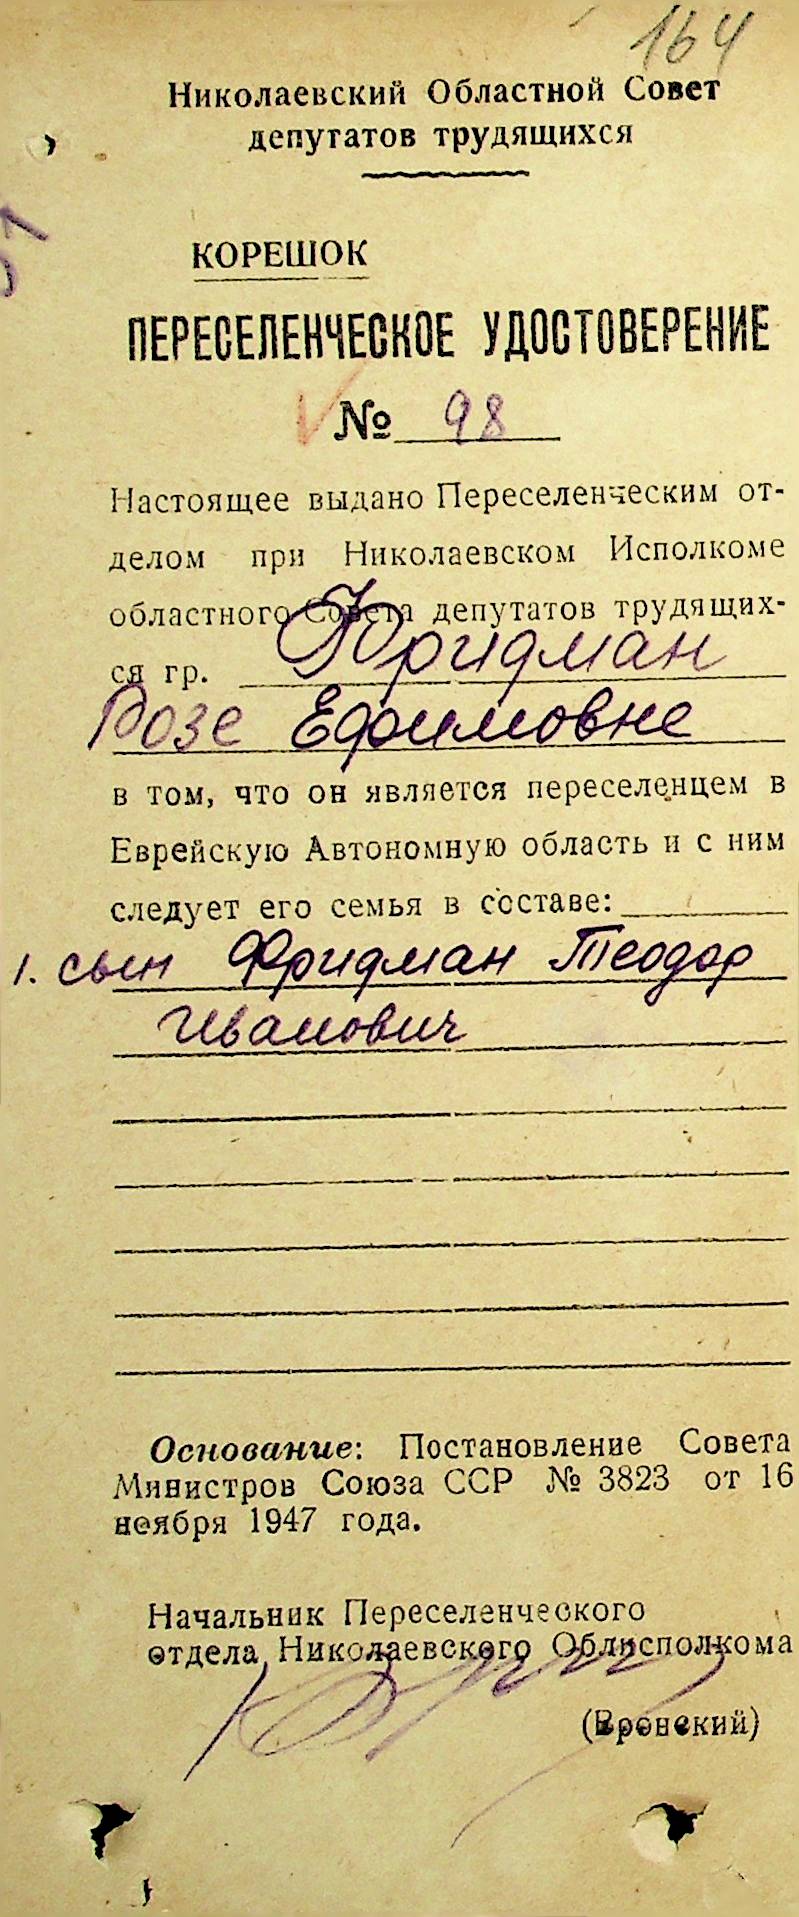 164
Николаевский Областной Совет
депутатов трудящихся
КОРЕШОК
ПЕРЕСЕЛЕНЧЕСКОЕ УДОСТОВЕРЕНИЕ
№ 98
Настоящее выдано Переселенческим от-
делом при Николаевском Исполкоме
областного Совета депутатов трудящих-
ся гр. Фридман
Розе Ефимовне
в том, что он является переселенцем в
Еврейскую Автономную область и с ним
следует его семья в составе:
1. сын Фридман Теодор
Иванович
Основание: Постановление Совета
Министров Союза ССР № 3823 от 16
ноября 1947 года.
Начальник Переселенческого
отдела Николаевского Облисполкома
(Вронский)